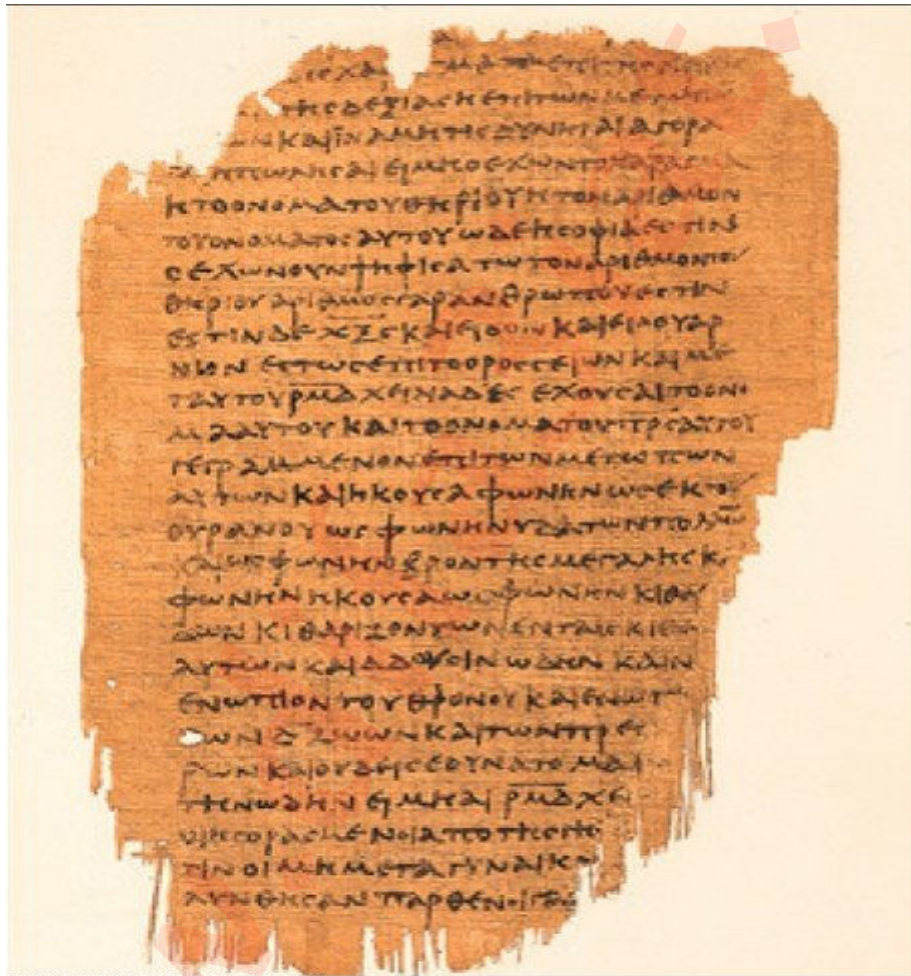 ΤΗCΔΕΞΙΑCΗΕΠΙΤΩΝΜΕΤΩΠ
ΩΝΚΑΙΪΝΑΜΗΤΙCΔΥΝΗΤΑΙΑΓΟΡΑ
ΗΠΩΛΗCΑΙΕΙΜΗΟΕΧΩΝΤΟΧΑΡΑΓΜΑ
ΗΤΟΟΝΟΜΑΤΟΥΘΗΡΙΟΥΗΤΟΝΑΡΙΘΜΟΝ
ΤΟΥΟΝΟΜΑΤΟCΑΥΤΟΥΩΔΕΗCΟΦΙΑΕCΤΙΝ
ΟΕΧΩΝΟΥΝΨΗΦΙCΑΤΩΤΟΝΑΡΙΘΜΟΝΤΟΥ
ΘΗΡΙΟΥΑΡΙΘΜΟCΓΑΡΑΝΘΡΩΠΟΥΕCΤΙΝ
ΕCΤΙΝΔΕΧΞϚΚΑΙΕΙΔΟΝΚΑΙΕΙΔΟΥΑΡ
ΝΙΟΝΕCΤΩCΕΠΙΤΟΟΡΟCCΕΙΩΝΚΑΙΜΕ
ΤΑΥΤΟΥΡΜΔΧΕΙΛΙΑΔΕCΕΧΟΥCΑΙΤΟΟΝΟ
ΜΑΑΥΤΟΥΚΑΙΤΟΟΝΟΜΑΤΟΥΠΡCΑΥΤΟΥ
ΓΕΓΡΑΜΜΕΝΟΝΕΠΙΤΩΝΜΕΤΩΠΩΝ
ΑΥΤΩΝΚΑΙΗΚΟΥCΑΦΩΝΗΝΩCΕΚΤΟΥ
ΟΥΡΑΝΟΥΩCΦΩΝΗΝΥΔΑΤΩΝΠΟΛΛΩ
ΚΑΙΩCΦΩΝΗΝΒΡΟΝΤΗCΜΕΓΑΛΗCΚ
ΦΩΝΗΝΗΚΟΥCΑΩCΦΩΝΗΝΚΙΘΑ
ΔΩΝΚΙΘΑΡΙΖΟΝΤΩΝΕΝΤΑΙCΚΙΘΑ
ΑΥΤΩΝΚΑΙΑΔΟΥCΙΝΩΔΗΝΚΑΙΝ
ΕΝΩΠΙΟΝΤΟΥΘΡΟΝΟΥΚΑΙΕΝΩΠ
ΤΩΝΔΖΩΩΝΚΑΙΤΩΝΠΡΕC
ΡΩΝΚΑΙΟΥΔΕΙCΕΔΥΝΑΤΟΜΑ
ΤΗΝΩΔΗΝΕΙΜΗΑΙΡΜΔΧΕΙ
ΟΙΗΓΟΡΑCΜΕΝΟΙΑΠΟΤΗCΓΗC
ΤΙΝΟΙΜΗΜΕΤΑΓΥΝΑΙΚ
ΛΥΝΘΗCΑΝΠΑΡΘΕΝΟΙΓΑΡ